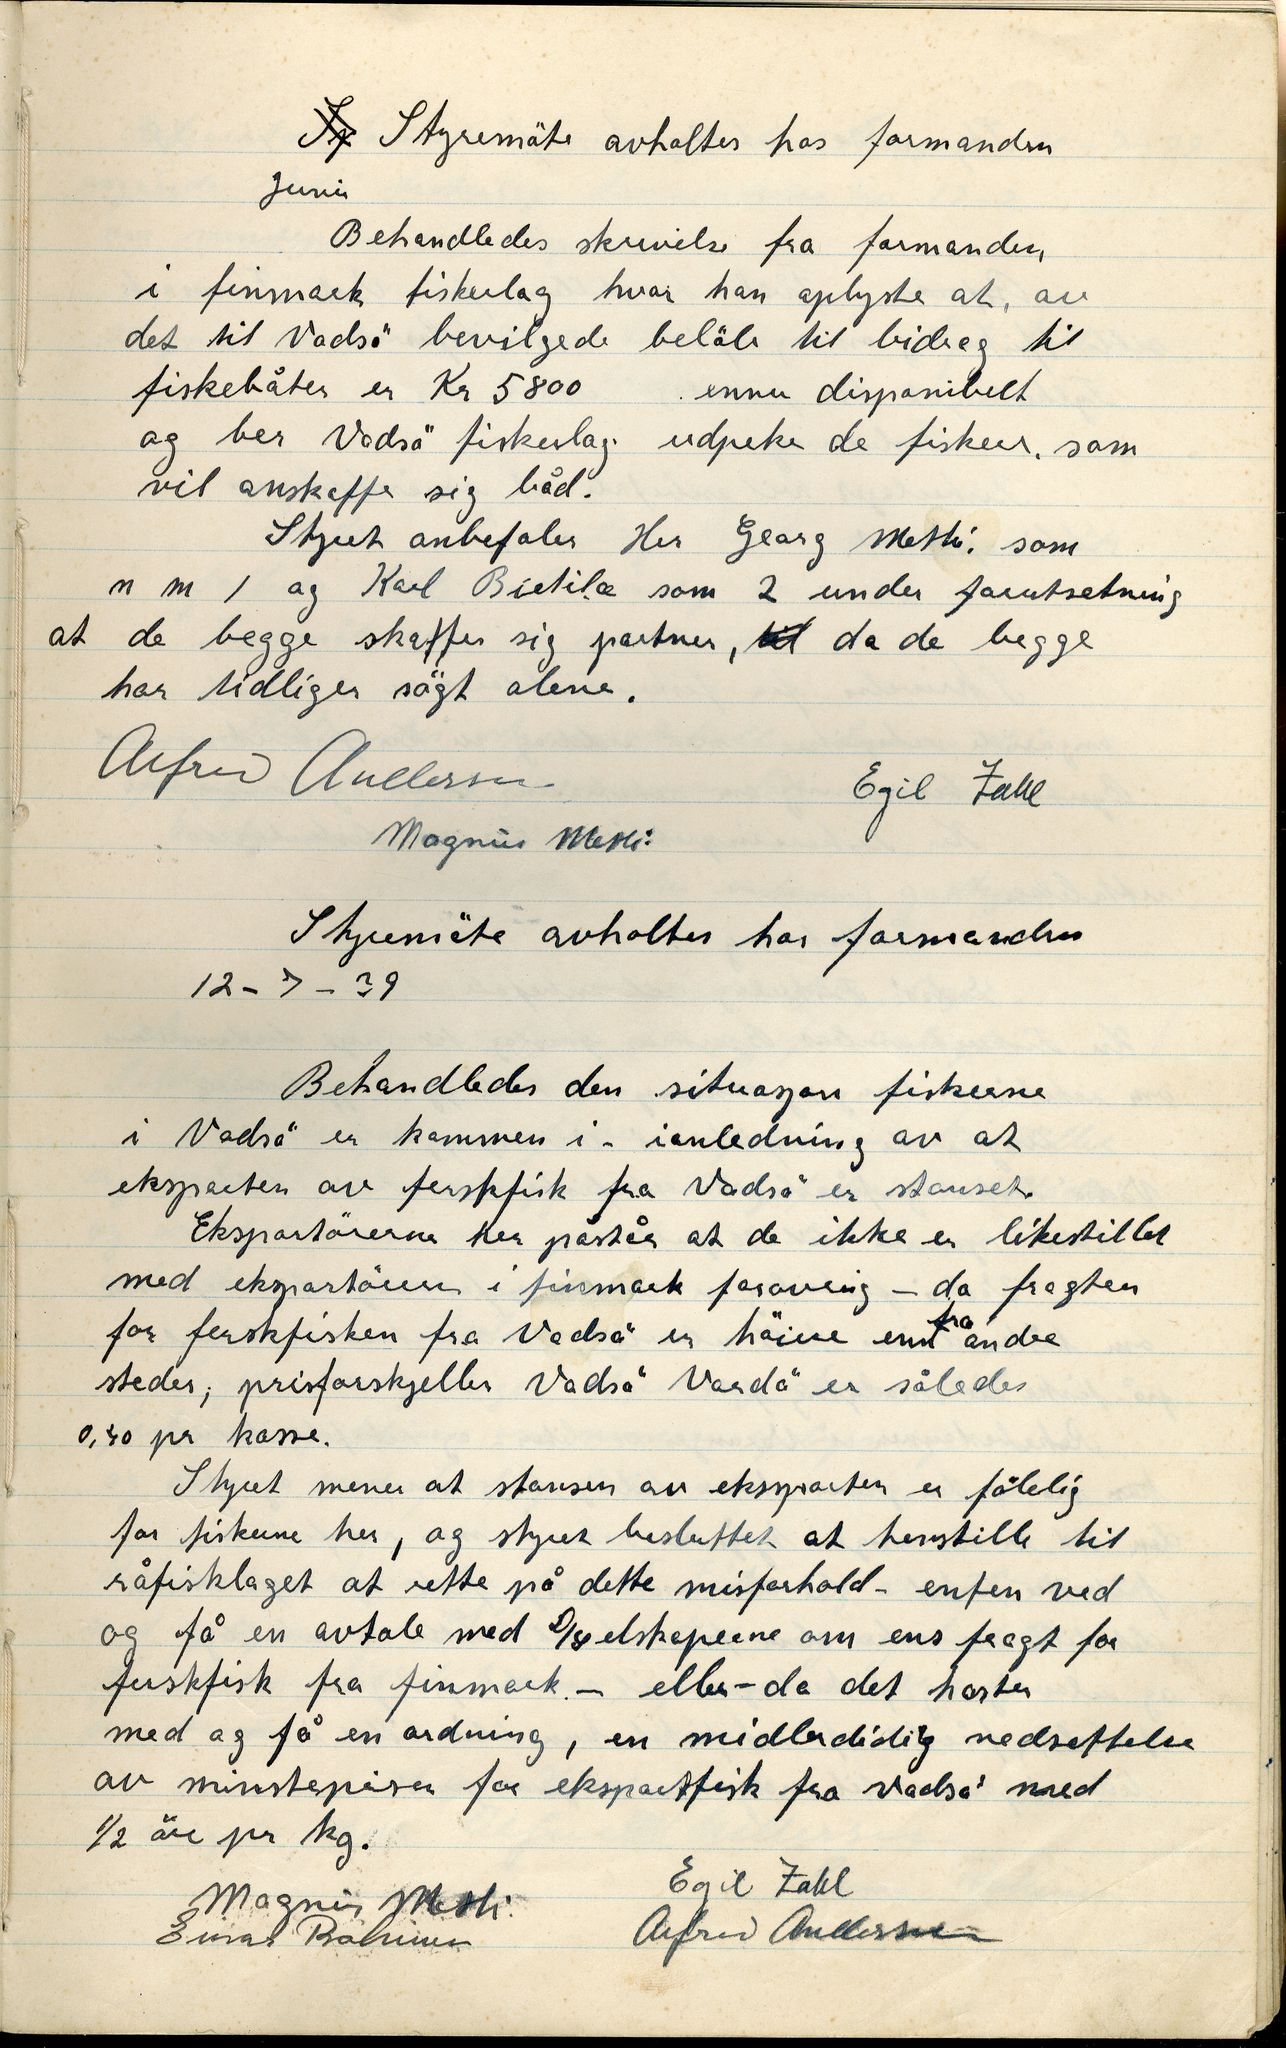 Styremöte avholtes hos formanden
Juni
Behandledes skrivelse fra formanden
i finmark fiskerlag hvor han oplyste at, av
det til Vadsö bevilgede belöb til bidrag til
fiskebåter er Kr 5800 ennu disponibelt
og ber Vadsö fiskerlag udpeke de fiskere. som
vil anskaffe sig båd.
Styret anbefaler Her Georg Metti. som
n m 1 og Karl Bietilæ som 2 under forutsetning
at de begge skaffer sig partner, da de begge
har tidliger sögt alene.
Alfred Andersen Egil Zahl
Magnus Metti.
Styremöte avholtes hos formanden
12-7-39
Behandledes den situasjon fiskerne
i Vadsö er kommen i - ianledning av at
eksporten av ferskfisk fra Vadsö er stanset.
Eksportörerne her påstår at de ikke er likestillet
med eksportörer i finmark forövrig - da fragten
for ferskfisken fra Vadsö er höiere enn fra andre
steder, prisforskjellen Vadsö Vardö er således
0,40 pr kasse.
Styret mener at stansen av eksporten er fölelig
for fiskerne her, og styret besluttet at henstille til
råfisklaget at rette på dette misforhold - enten ved
og få en avtale med D/Selskaperne om ens fragt for
ferskfisk fra finmark. - eller - da det haster
med og få en ordning, en midlerdidig nedsettelse
av minstepriser for eksportfisk fra Vadsö med
1/2 öre pr kg.
Magnus Metti. Egil Zahl
Einar Alfred Andersen